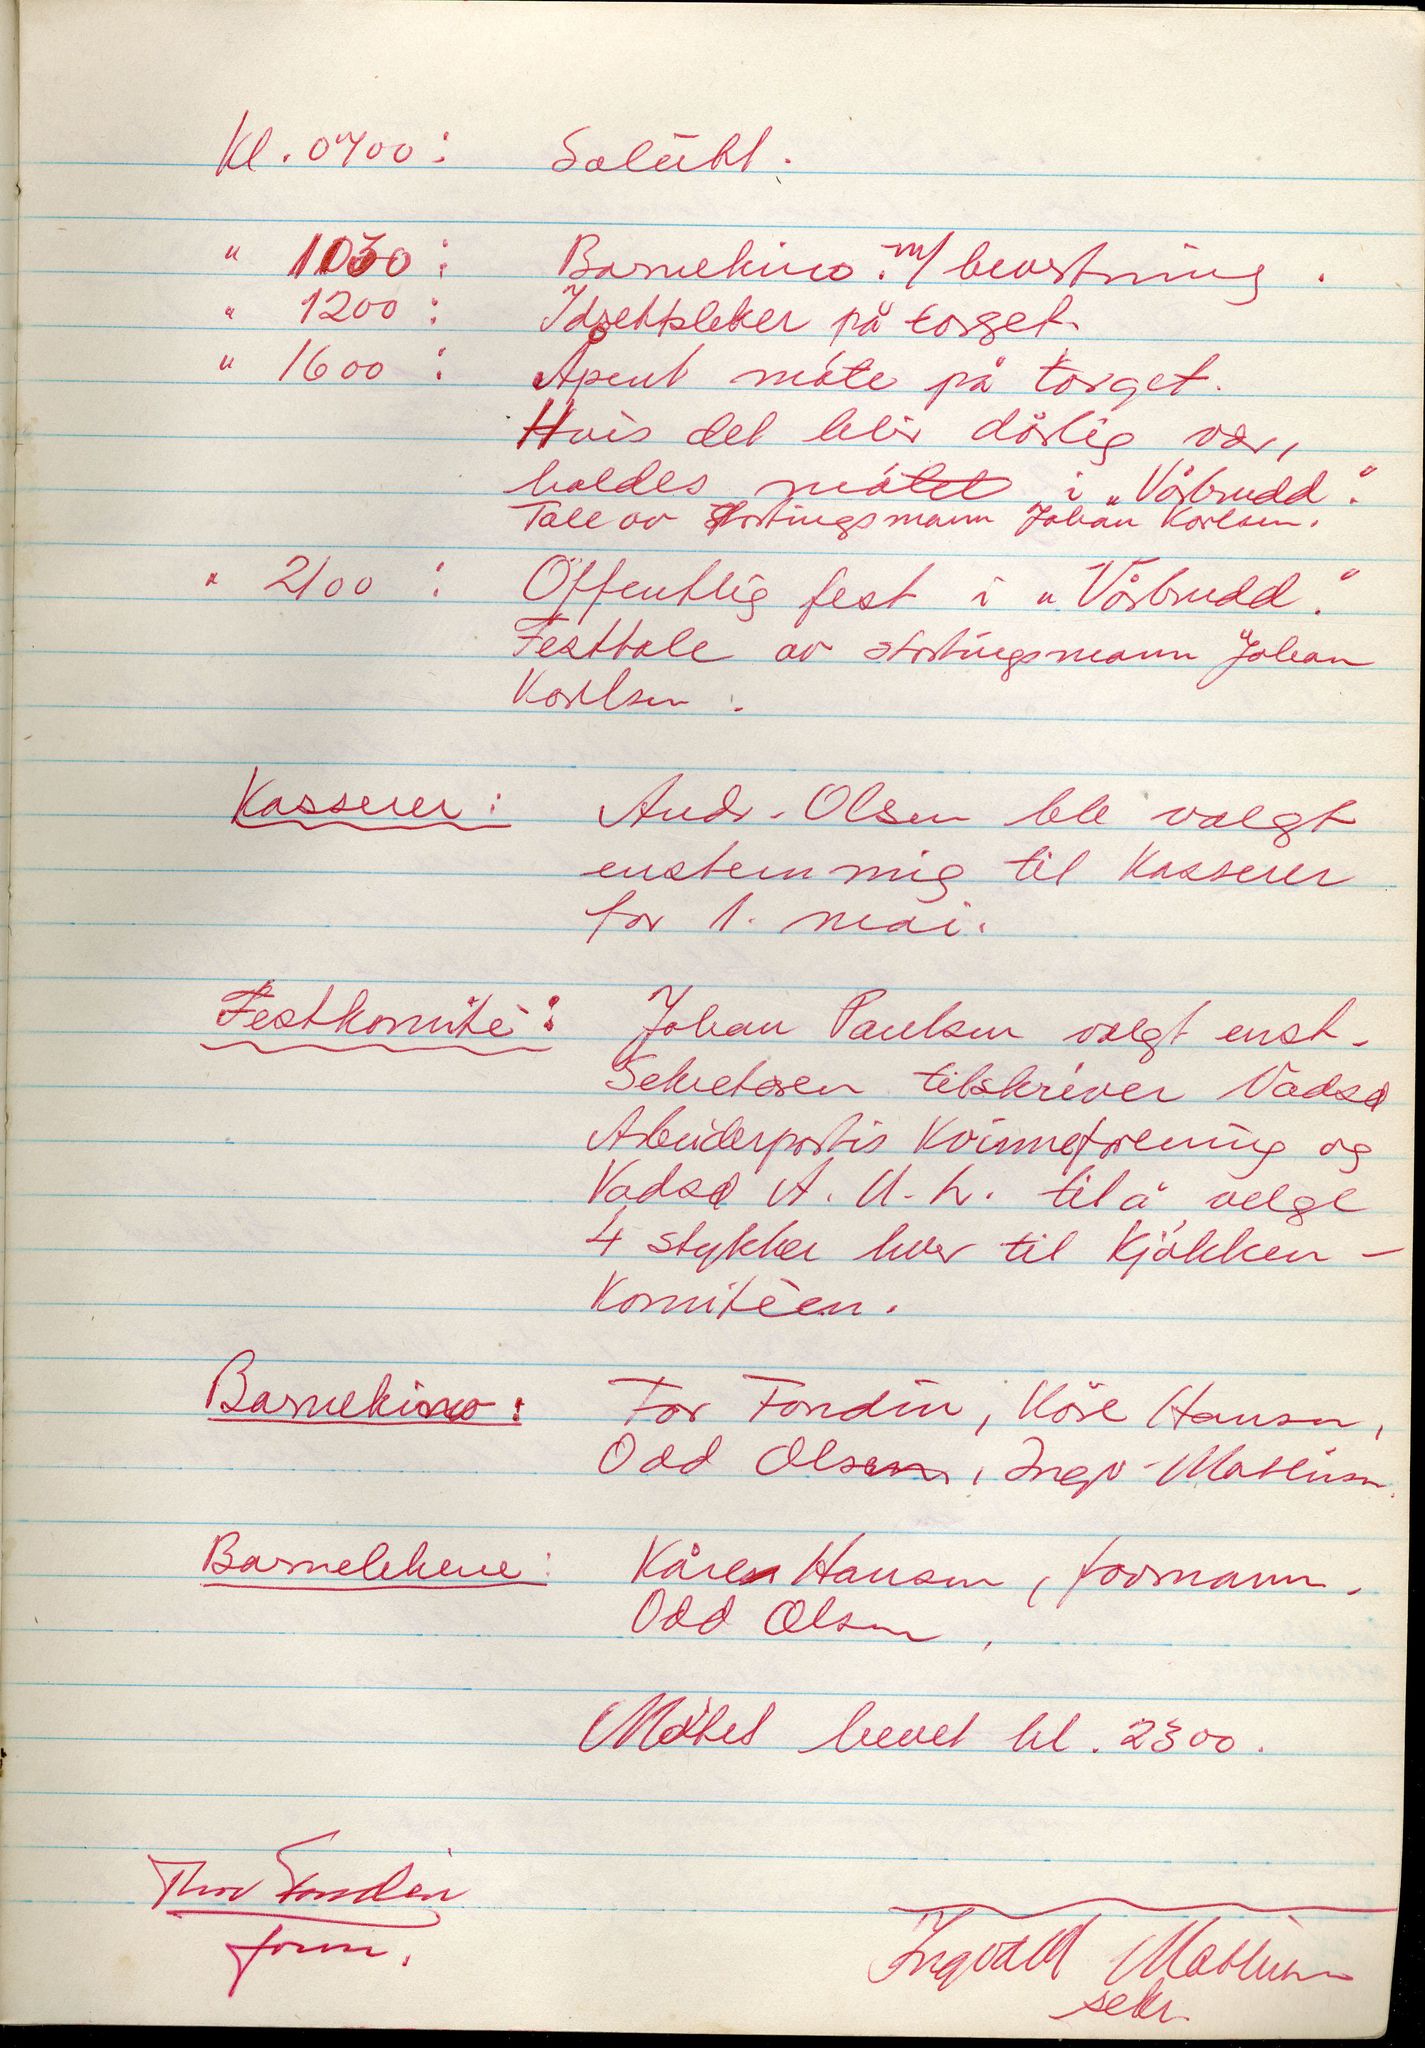 Kl. 0700: Salutt.
" 1030: Barnekino m/ bevertning.
" 1200: Idrettsleker på torget.
" 1600: Åpent møte på torget.
Hvis det blir dårlig vær,
holdes møtet i „Vårbrudd".
Tale av stortingsmann Johan Karlsen.
" 2100: Offentlig fest i „Vårbrudd".
Festtale av stortingsmann Johan
Karlsen.
Kasserer: Andr. Olsen ble valgt
enstemmig til Kasserer
for 1. mai.
Festkomitè: Johan Paulsen valgt enst.
Sekretæren tilskriver Vadsø
Arbeiderpartis Kvinneforening og
Vadsø A. U. L. til å velge
4 stykker hver til Kjøkken-
Komitèen.
Barnekino: Tor Fondin, Kåre Hansen,
Odd Olsen, Ingv. Mathisen.
Barnelekene: Kåre Hansen, formann.
Odd Olsen,
Møtet hevet kl. 2300.
Thor Fondin
form.
Ingvald Mathisen
sekr.